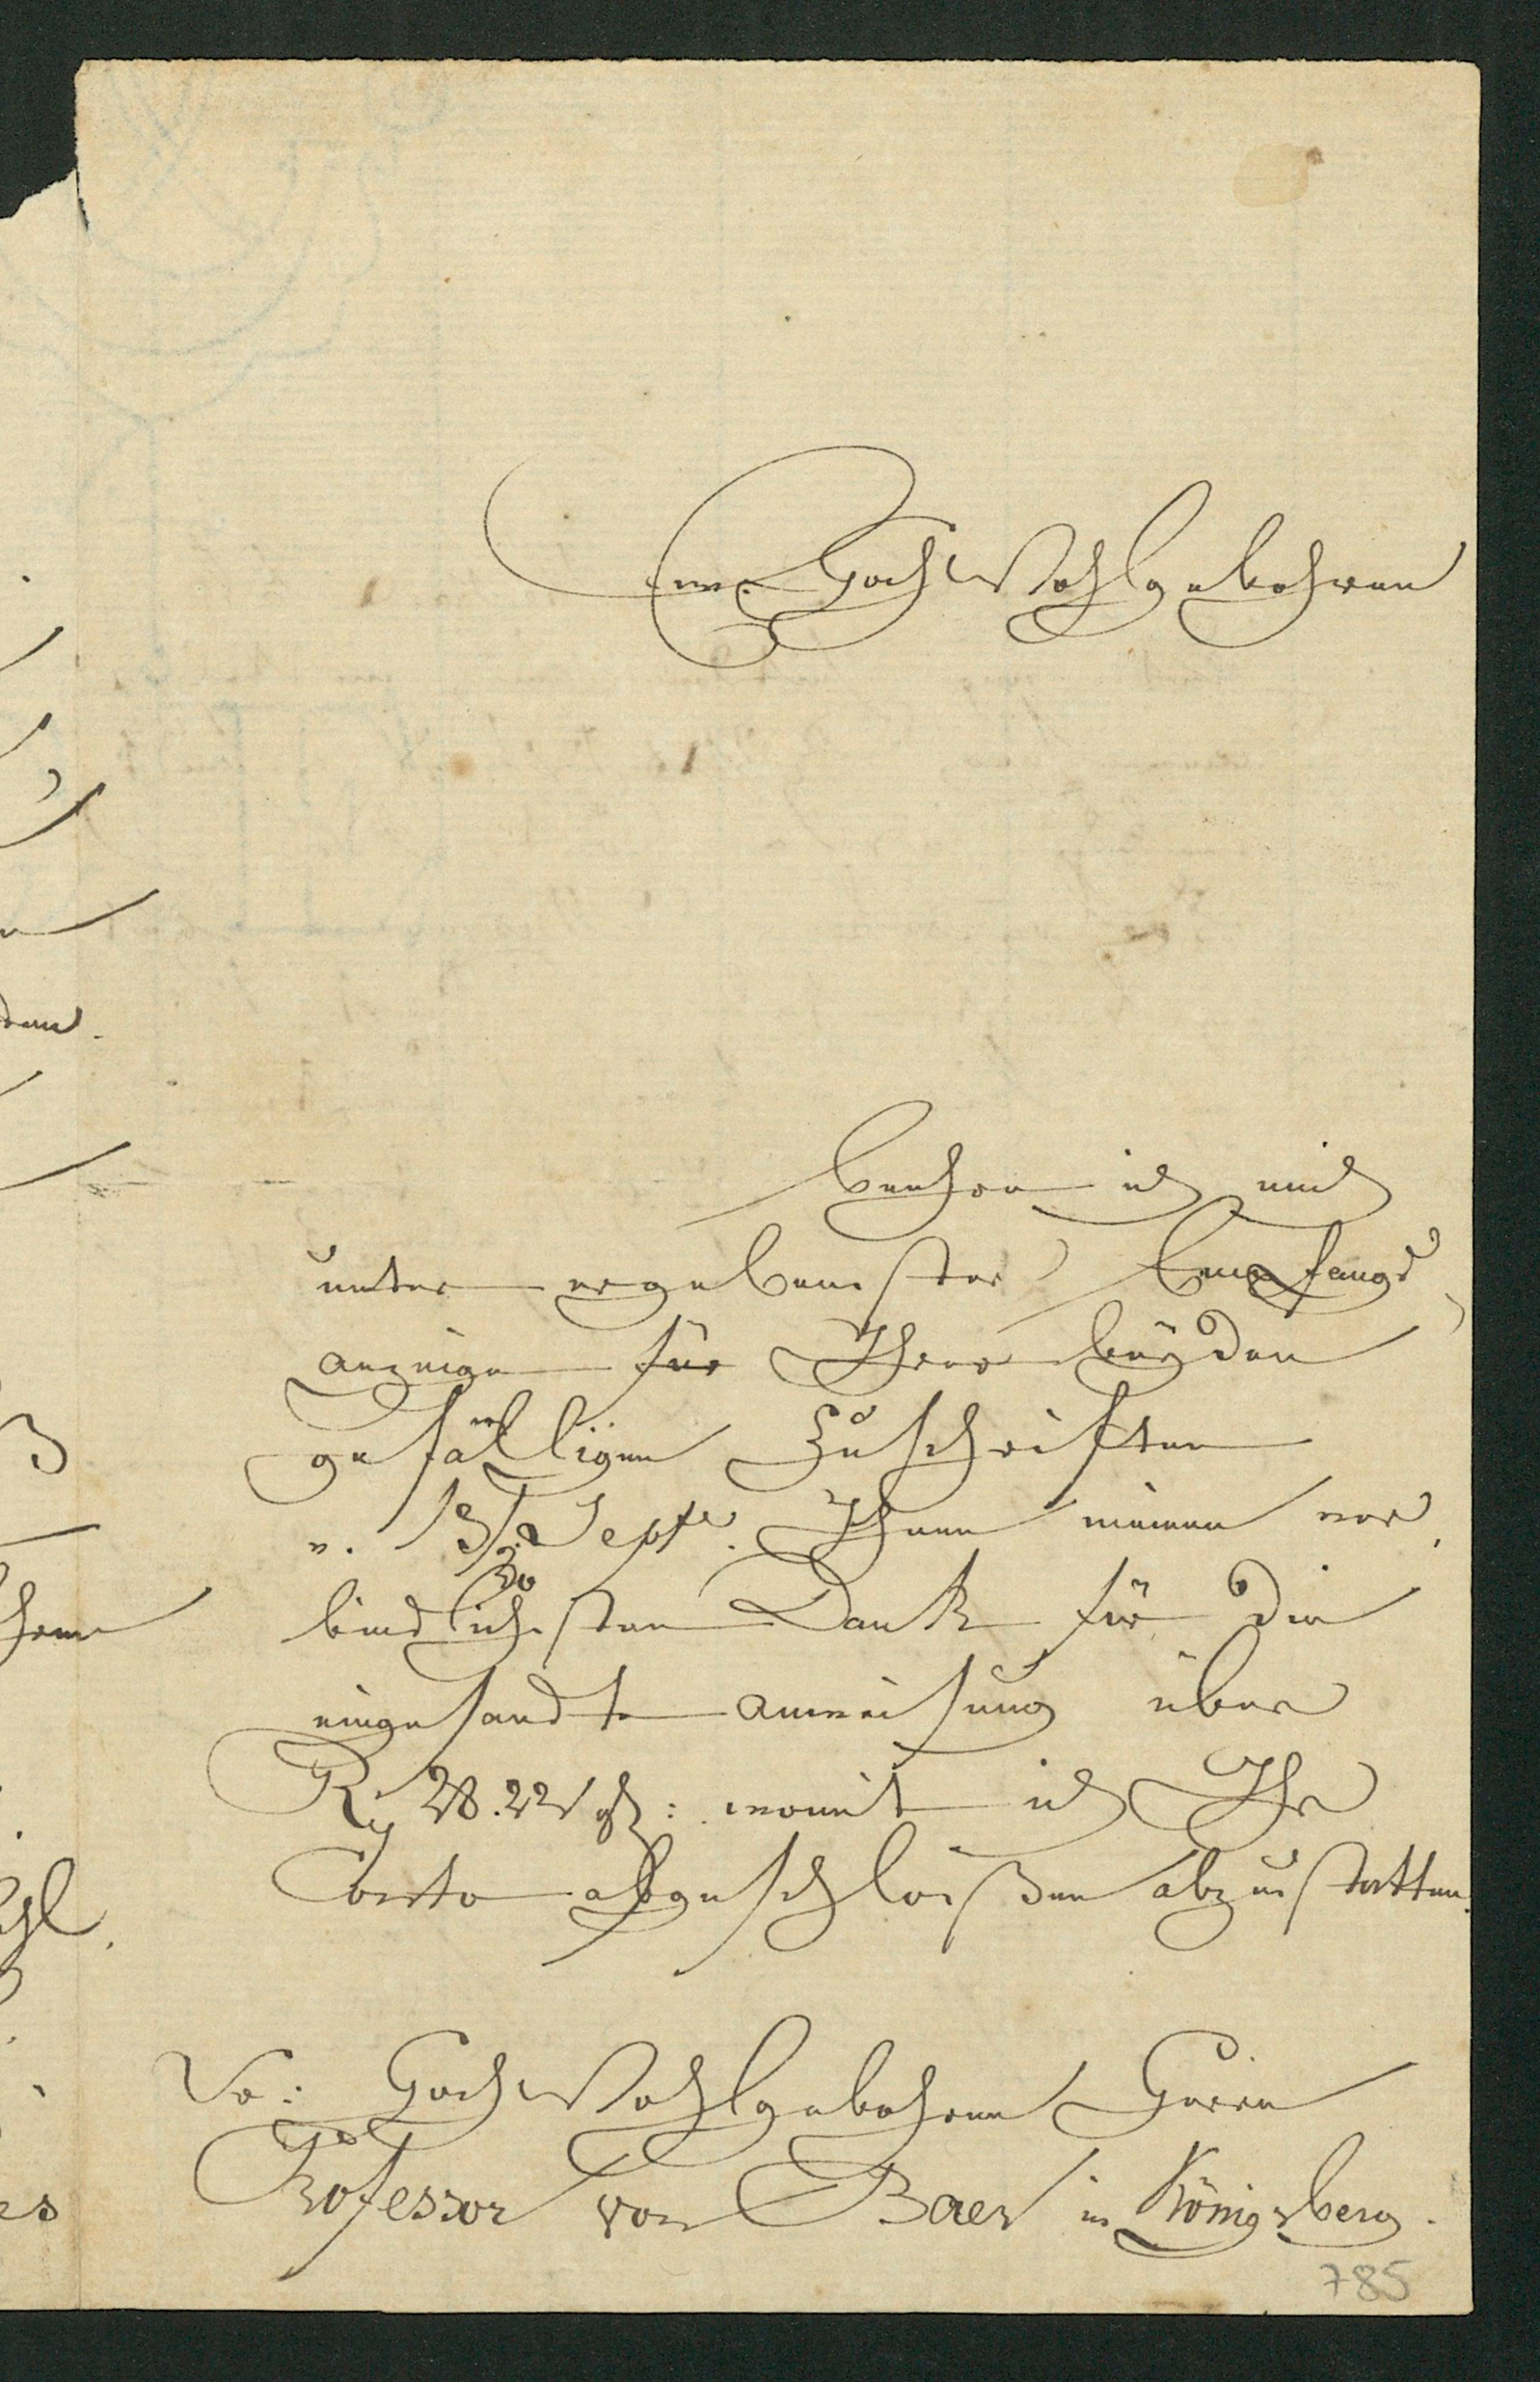 Ew: HochWohlgebohren
beehre ich mich
unter ergebenster Empfangs-
anzeige für Ihrer beyden
gefälligen Zuschriften
v. 13/30 Septr. Ihnen meinen ver-
bindlichsten Dank für die
eingesandte Anweisung über
R 28.22 gl: womit ich Ihr
Conto abgeschloißen abzustatten.
Sr: HochWohlgebohren Herrn
Professor von Baer in Königsberg.
785